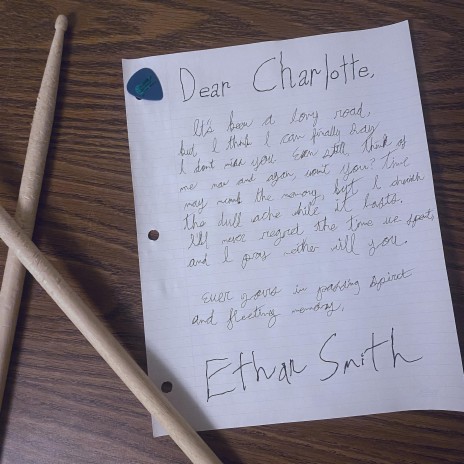 Dear Charlotte,
It's been a long road,
but I think I can finally say
I dont miss you. Even still, think of
me now and again, wont you? Time
may numb the memory, but I cherish
the dull ache while it lasts.
I'll never regret the time we spent,
and I pray neither will you.
Ever yours in passing spiret
and fleeting memory,
Ethan Smith